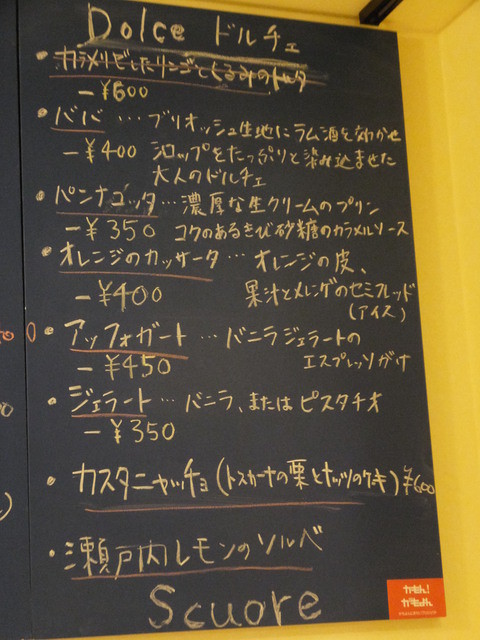 Dolce ドルチェ
・カラメリゼしたリンゴとくるみのトルタ
－¥600
・ババ … ブリオッシュ生地にラム酒を効かせ
－¥400 シロップをたっぷりと染み込ませた
大人のドルチェ
・パンナコッタ … 濃厚な生クリームのプリン
－¥350 コクのあるきび砂糖のカラメルソース
・オレンジのカッサータ … オレンジの皮、
－¥400 果汁とメレンゲのセミフレッド
(アイス)
・アッフォガート … バニラジェラートの
－¥450 エスプレッソがけ
・ジェラート … バニラ、または ピスタチオ
－¥350
・カスタニャッチョ (トスカーナの栗とナッツのケーキ) ¥600
・瀬戸内レモンのソルベ
Scuore